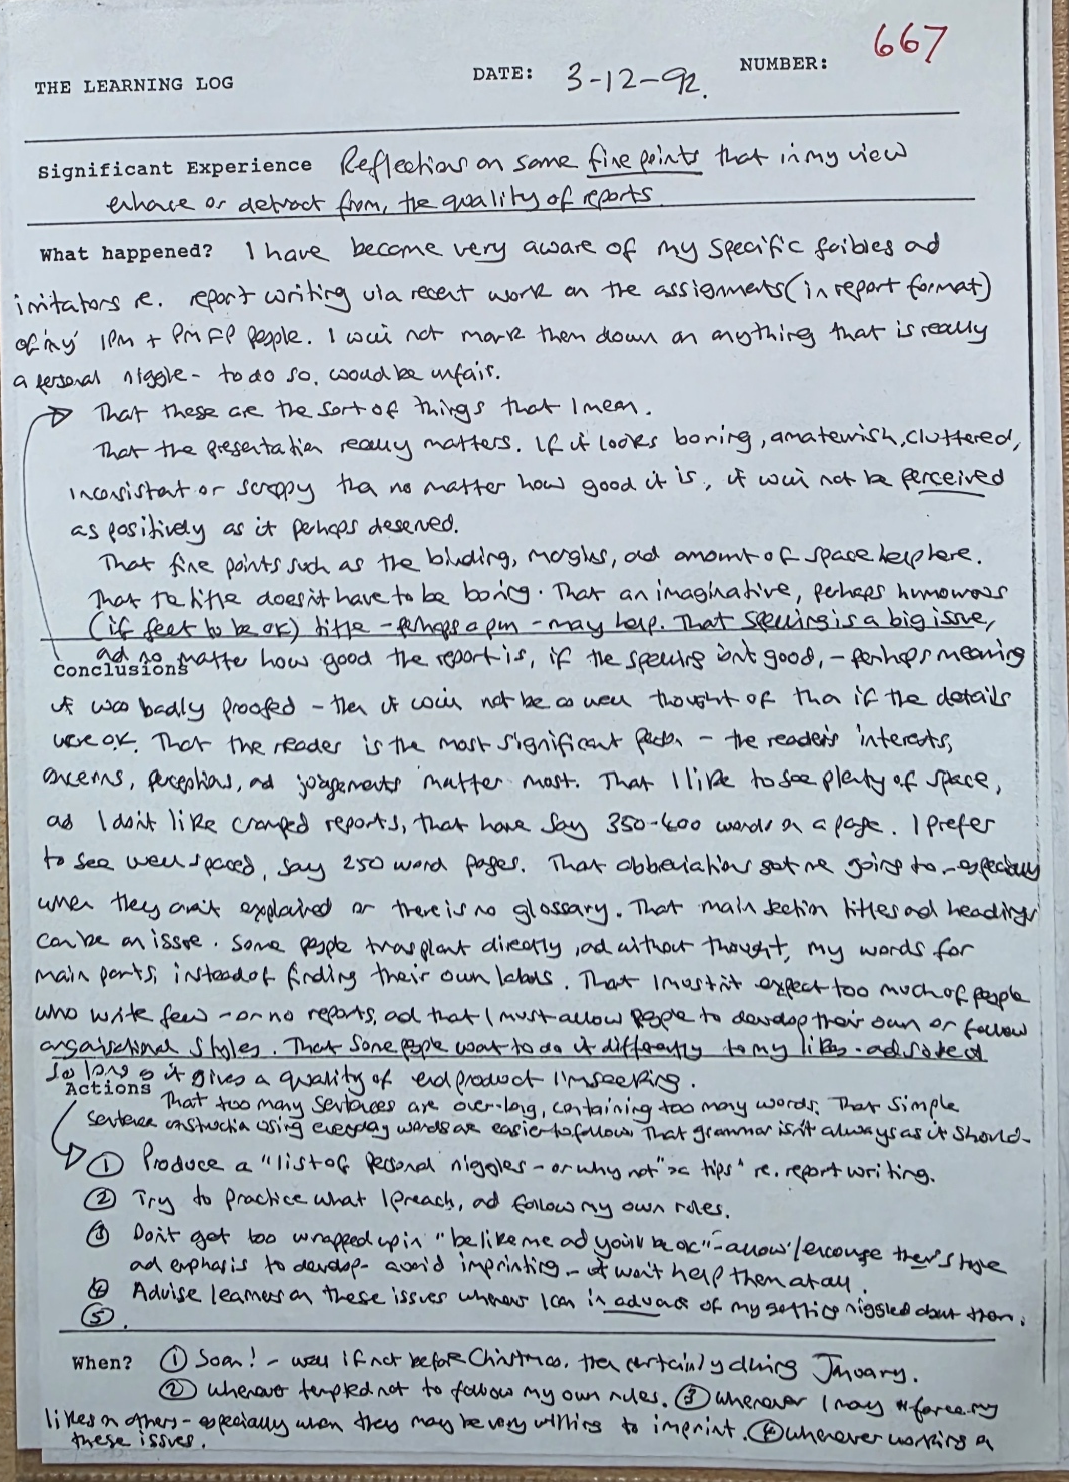 667
THE LEARNING LOG DATE: 3-12-92. NUMBER:
Significant Experience Reflections on some fine points that in my view
enhance or detract from, the quality of reports.
What happened? I have become very aware of my specific foibles and
irritators re. report writing via recent work on the assignments (in report format)
of 'my' IPM + PMFP people. I will not mark them down on anything that is really
a personal niggle - to do so, would be unfair.
That these are the sort of things that I mean.
That the presentation really matters. If it looks boring, amateurish, cluttered,
inconsistent or scrappy then no matter how good it is, it will not be perceived
as positively as it perhaps deserved.
That fine points such as the binding, margins, and amount of space help here.
That the title doesn't have to be boring. That an imaginative, perhaps humorous
(if feel to be ok) title - perhaps a pun - may help. That spelling is a big issue,
and no matter how good the report is, if the spelling isn't good, - perhaps meaning
Conclusions
it was badly proofed - then it will not be as well thought of than if the details
were ok. That the reader is the most significant person - the reader's interests,
concerns, perceptions, and judgements matter most. That I like to see plenty of space,
as I don't like cramped reports, that have say 350-400 words on a page. I prefer
to see well spaced, say 250 word pages. That abbreviations get me going to - especially
when they aren't explained or there is no glossary. That main section titles and headings
can be an issue. Some people transplant directly, and without thought, my words for
main parts, instead of finding their own labels. That I mustn't expect too much of people
who write few - or no reports, and that I must allow people to develop their own or follow
organisational styles. That some people want to do it differently to my likes - and so be it
so long as it gives a quality of end product I'm seeking.
Actions That too many sentences are over-long, containing too many words. That simple
sentence construction using everyday words are easier to follow. That grammar isn't always as it should.
① Produce a "list of personal niggles - or why not" tips" re. report writing.
② Try to practice what I preach, and follow my own rules.
③ Don't get too wrapped up in "be like me and you'll be ok" - allow/encourage their style
and emphasis to develop - avoid imprinting - it won't help them at all.
④ Advise learners on these issues whenever I can in advance of my getting niggled about them.
⑤.
When? ① Soon! - well if not before Christmas, then certainly during January.
② Whenever tempted not to follow my own rules. ③ Whenever I may force my
likes on others - especially when they may be very willing to imprint. ④ Whenever working on
these issues.